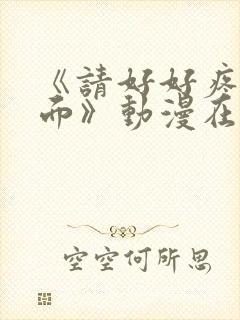 《請好好疼
而》動漫在
空空何所思